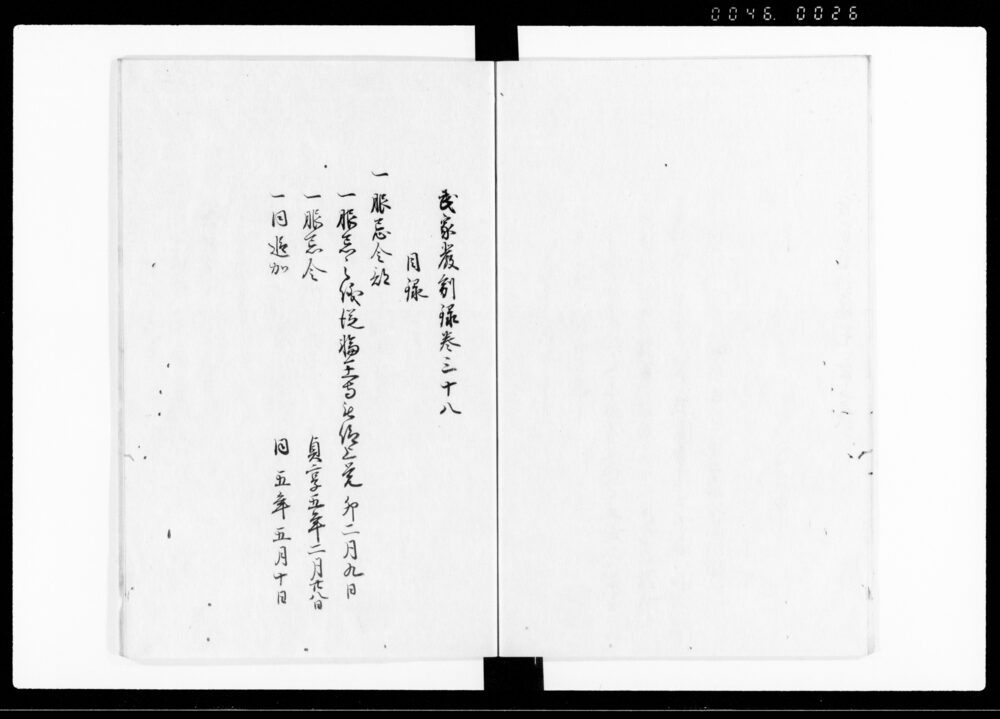 0046. 0026
民家嚴制録巻三十八
目録
一 服忌令部
一 服忌之儀従輪王寺被仰上覚 卯二月九日
一 服忌令 貞享五年二月廿八日
一 同追加 同五年五月十日